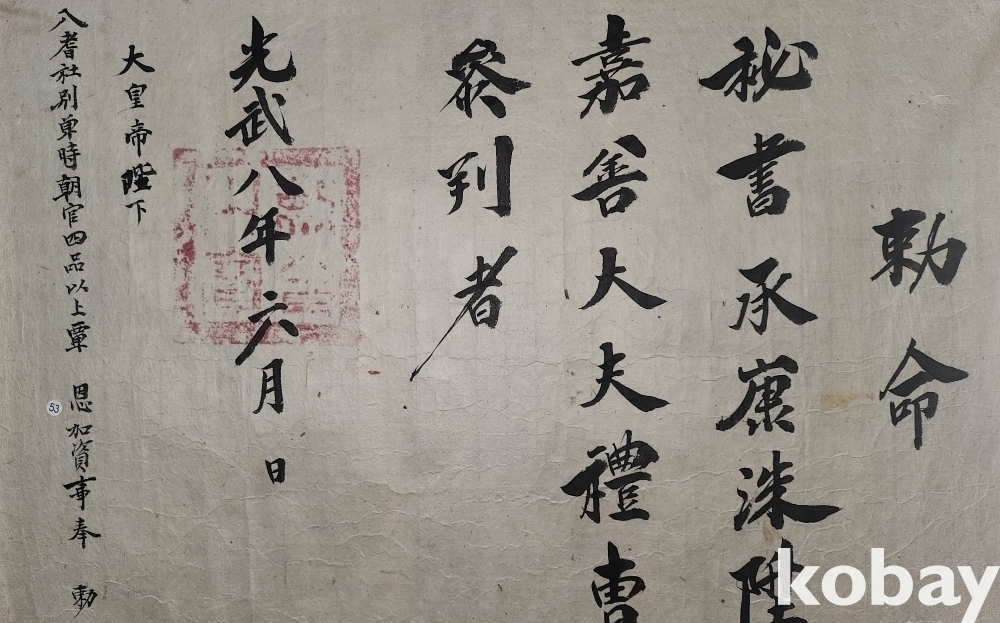 勅命
秘書承康洙陞
嘉善大夫禮曹
叅判者
光武八年六月 日
大皇帝陛下
八耆社別單時朝官四品以上覃 恩加資事奉 勅
53
kobay